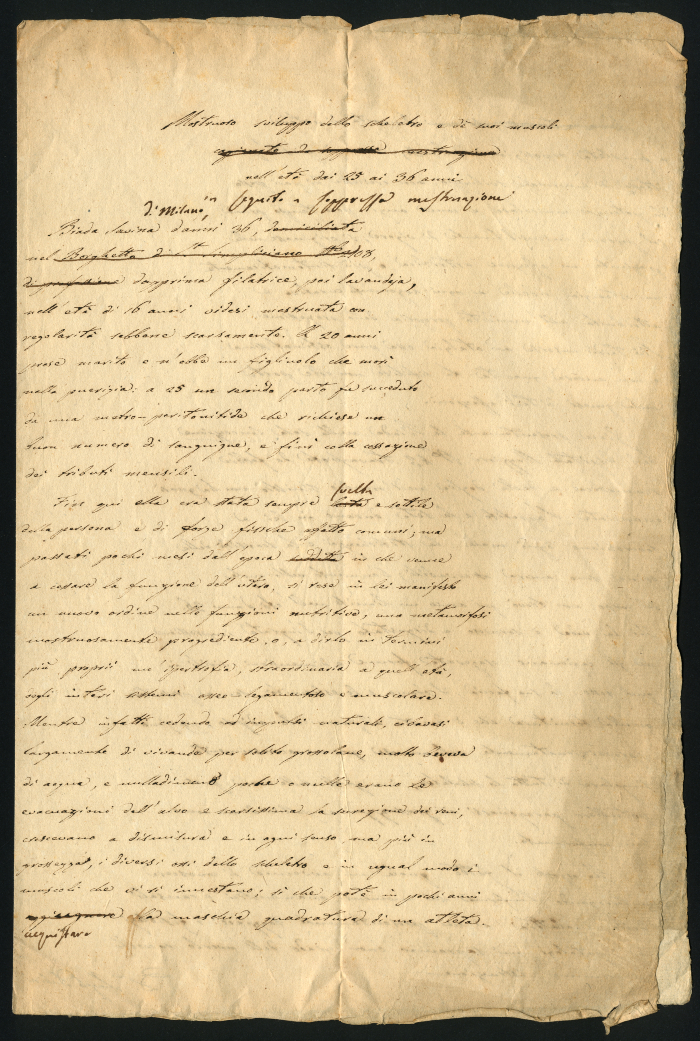 Mostruoso sviluppo dello scheletro e de' suoi muscoli
nell'età dai 25 ai 36 anni
di Milano, in seguito a soppressa mestruazione
Biada Savina d'anni 36, domiciliata
nel Borghetto di St. Simpliciano No. 108,
di professione dapprima filatrice, poi lavandaja,
nell'età di 16 anni videsi mestruata con
regolarità sebbene scarsamente. A 20 anni
prese marito e n'ebbe un figliuolo che morì
nella puerizia: a 25 un secondo parto fu succeduto
da una metro-peritonitide che richiese un
buon numero di sanguigne, e finì colla cessazione
dei tributi mensili.
Fino qui ella era stata sempre svelta e sottile
della persona e di forze fisiche affatto comuni; ma
passati pochi mesi dall'epoca in che venne
a cessare la funzione dell'utero, si rese in lei manifesto
un nuovo ordine nelle funzioni nutritive, una metamorfosi
mostruosamente progrediente, o, a dirlo in termini
più proprii un'ipertrofia, straordinaria a quell'età,
negli interi sistemi osseo-legamentoso e muscolare.
Mentre infatti cedendo ad impulsi naturali, cibavasi
largamente di vivande per solito grossolane, molto beveva
di acqua, e nulladimeno poche o nulle erano le
evacuazioni dell'alvo e scarsissima la secrezione dei reni,
crescevano a dismisura e in ogni senso ma più in
grossezza, i diversi ossi dello scheletro e in egual modo i
muscoli che vi si innestano; sì che potè in pochi anni
acquistare la maschia quadratura di un atleta.